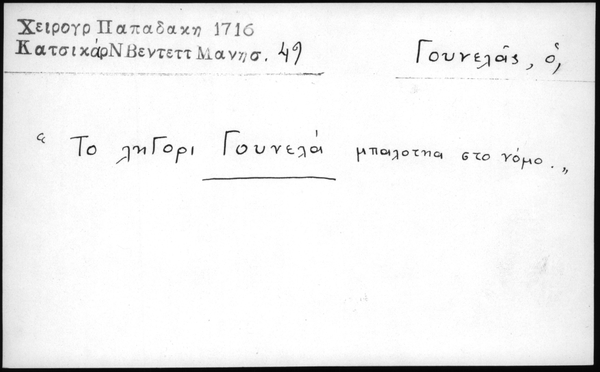 Χειρογρ Παπαδακη 1716
ΚατσικάρΝΒεντεττ Μανησ. 49
Γουνελᾶς, ὁ,
“ Το ληΓορι Γουνελά μπαλοτηα στο νόμο. „